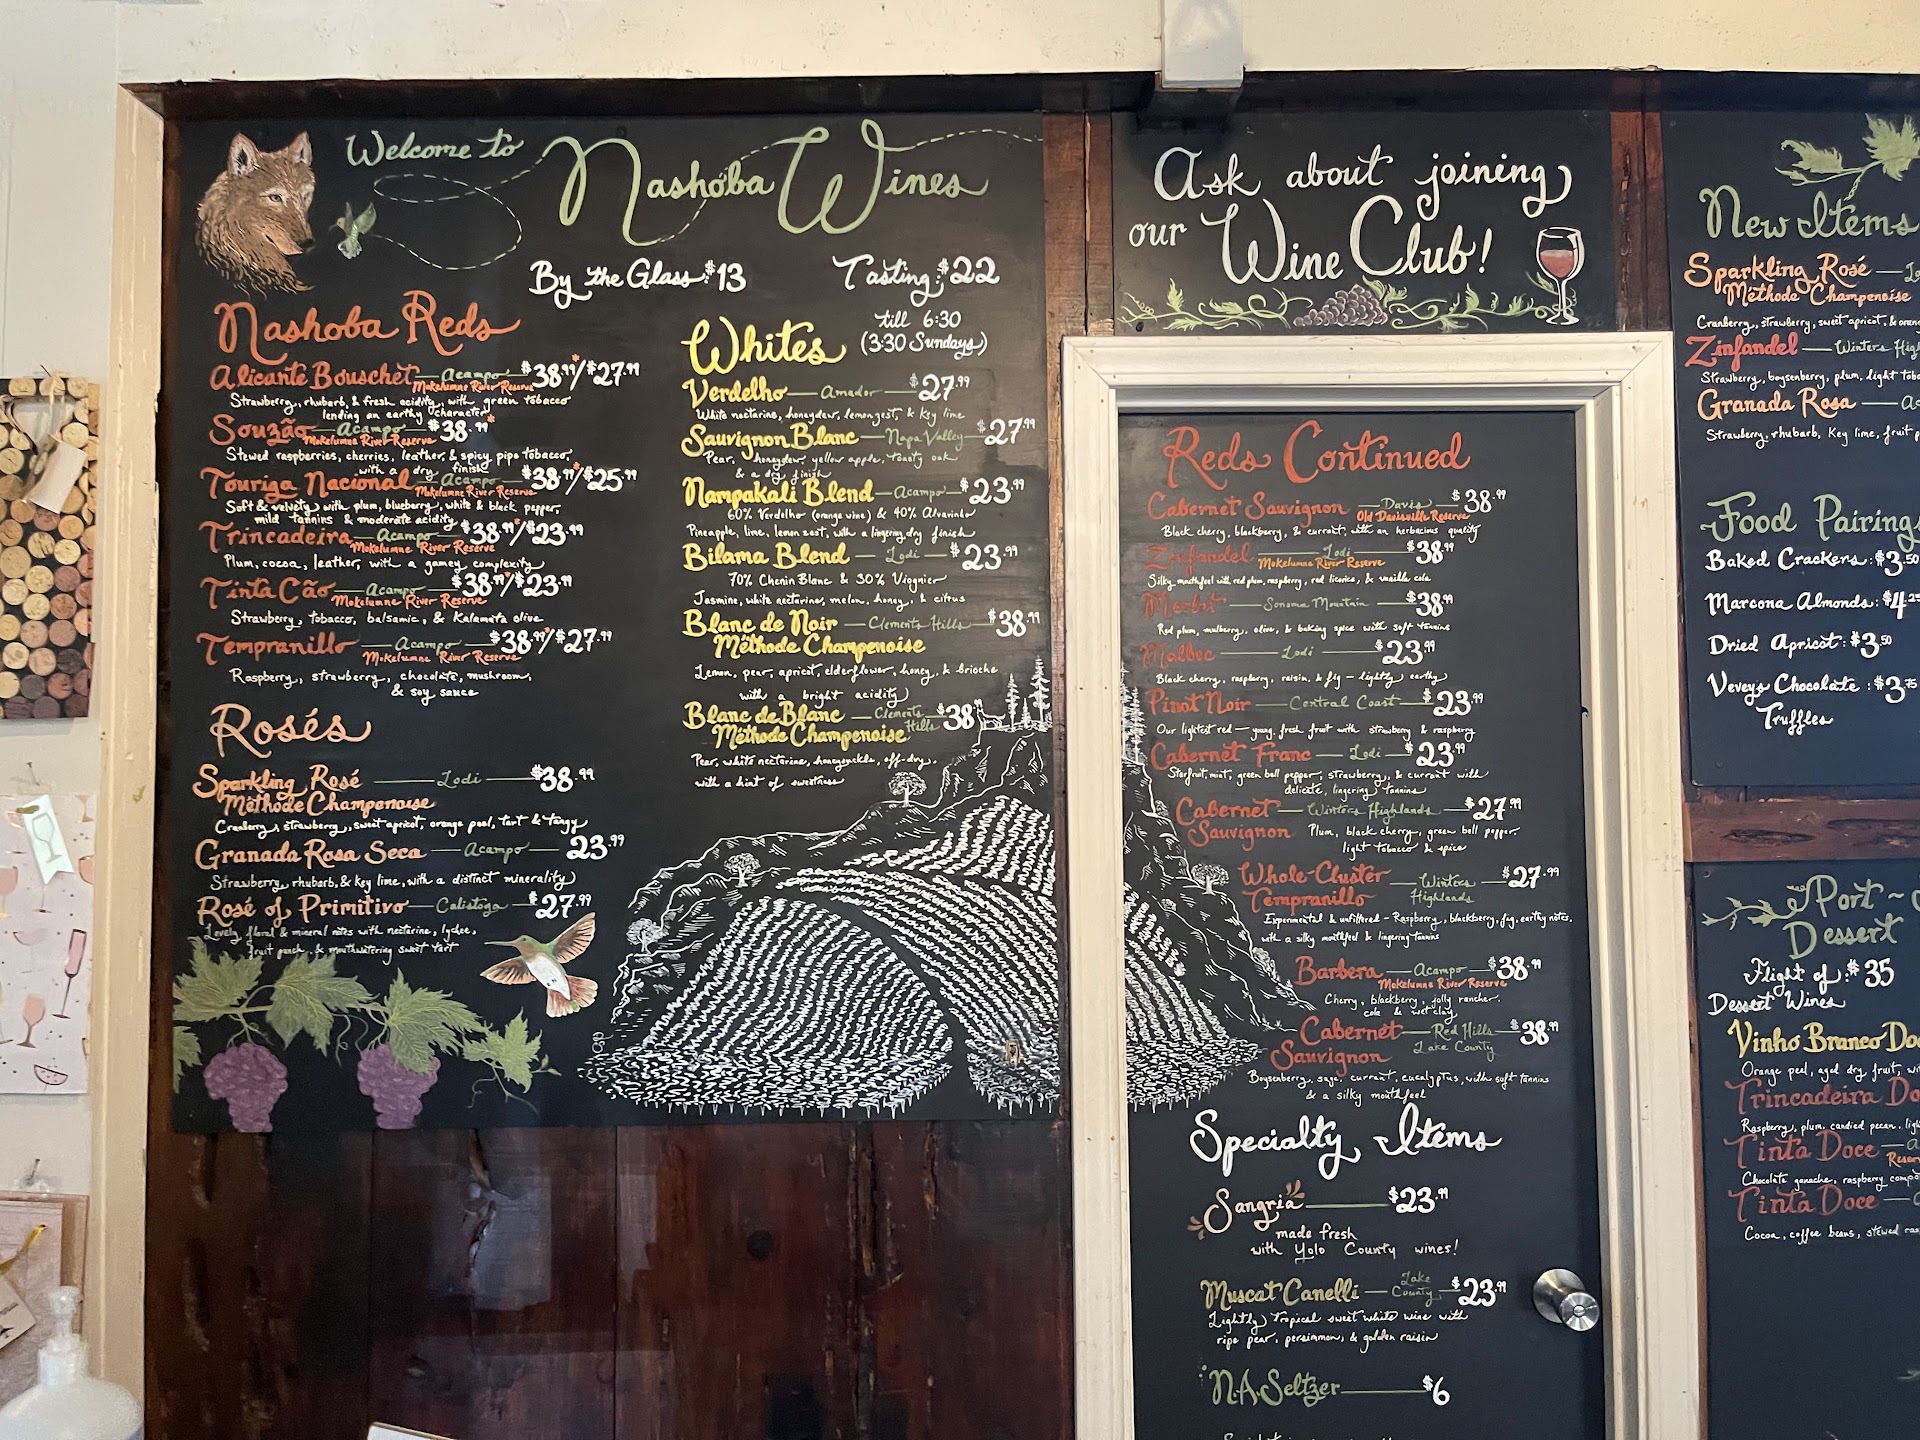 Welcome to Nashoba Wines
By the Glass: $13
Tasting: $22
till 6:30
(3:30 Sundays)
Nashoba Reds
Alicante Bouschet — Acampo — $38.99*/$27.99
Mokelumne River Reserve
Strawberry, rhubarb, & fresh acidity, with green tobacco
lending an earthy character
Souzão — Acampo — $38.99*
Mokelumne River Reserve
Stewed raspberries, cherries, leather, & spicy pipe tobacco,
with a dry finish
Touriga Nacional — Acampo — $38.99*/$25.99
Mokelumne River Reserve
Soft & velvety with plum, blueberry, white & black pepper,
mild tannins & moderate acidity
Trincadeira — Acampo — $38.99*/$23.99
Mokelumne River Reserve
Plum, cocoa, leather, with a gamey complexity
Tinta Cão — Acampo — $38.99*/$23.99
Mokelumne River Reserve
Strawberry, tobacco, balsamic, & Kalamata olive
Tempranillo — Acampo — $38.99*/$27.99
Mokelumne River Reserve
Raspberry, strawberry, chocolate, mushroom,
& soy sauce
Rosés
Sparkling Rosé — Lodi — $38.99
Méthode Champenoise
Cranberry, strawberry, sweet apricot, orange peel, tart & tangy
Granada Rosa Seca — Acampo — 23.99
Strawberry, rhubarb, & key lime, with a distinct minerality
Rosé of Primitivo — Calistoga — $27.99
Lovely floral & mineral notes with nectarine, lychee,
fruit punch, & mouthwatering sweet tart
Whites
Verdelho — Amador — $27.99
White nectarine, honeydew, lemon zest, & key lime
Sauvignon Blanc — Napa Valley — $27.99
Pear, honeydew, yellow apple, toasty oak
& a dry finish
Nampakali Blend — Acampo — $23.99
60% Verdelho (orange wine) & 40% Alvarinho
Pineapple, lime, lemon zest, with a lingering dry finish
Bilama Blend — Lodi — $23.99
70% Chenin Blanc & 30% Viognier
Jasmine, white nectarine, melon, honey, & citrus
Blanc de Noir — Clements Hills — $38.99
Méthode Champenoise
Lemon, pear, apricot, elderflower, honey, & brioche
with a bright acidity
Blanc de Blanc — Clements Hills — $38.99
Méthode Champenoise
Pear, white nectarine, honeysuckle, off-dry,
with a hint of sweetness
Ask about joining
our Wine Club!
Reds Continued
Cabernet Sauvignon — Davis — $38.99
Old Davisville Reserve
Black cherry, blackberry, & currant, with an herbacious quality
Zinfandel — Lodi — $38.99
Mokelumne River Reserve
Silky mouthfeel with red plum, raspberry, red licorice, & vanilla cola
Merlot — Sonoma Mountain — $38.99
Red plum, mulberry, olive, & baking spice with soft tannins
Malbec — Lodi — $23.99
Black cherry, raspberry, raisin, & fig — lightly earthy
Pinot Noir — Central Coast — $23.99
Our lightest red — young, fresh fruit with strawberry & raspberry
Cabernet Franc — Lodi — $23.99
Starfruit, mint, green bell pepper, strawberry, & currant with
delicate, lingering tannins
Cabernet Sauvignon — Winters Highlands — $27.99
Plum, black cherry, green bell pepper,
light tobacco & spice
Whole-Cluster Tempranillo — Winters Highlands — $27.99
Experimental & unfiltered - Raspberry, blackberry, fig, earthy notes,
with a silky mouthfeel & lingering tannins
Barbera — Acampo — $38.99
Mokelumne River Reserve
Cherry, blackberry, jolly rancher,
cola & wet clay
Cabernet Sauvignon — Red Hills Lake County — $38.99
Boysenberry, sage, currant, eucalyptus, with soft tannins
& a silky mouthfeel
Specialty Items
Sangria — $23.99
made fresh
with Yolo County wines!
Muscat Canelli — Lake County — $23.99
Lightly tropical sweet white wine with
ripe pear, persimmon, & golden raisin
N.A. Seltzer — $6
New Items
Sparkling Rosé —
Méthode Champenoise
Cranberry, strawberry, sweet apricot, &
Zinfandel — Winters
Strawberry, boysenberry, plum, light
Granada Rosa —
Strawberry, rhubarb, Key lime, fruit
Food Pairing
Baked Crackers: $3.50
Marcona Almonds: $4.25
Dried Apricot: $3.50
Veveys Chocolate: $3.75
Truffles
Port ~
Dessert
Flight of: $35
Dessert Wines
Vinho Branco
Orange peel, aged dry fruit,
Trincadeira
Raspberry, plum, candied pecan,
Tinta Doce —
Chocolate ganache, raspberry
Tinta Doce —
Cocoa, coffee beans, stewed